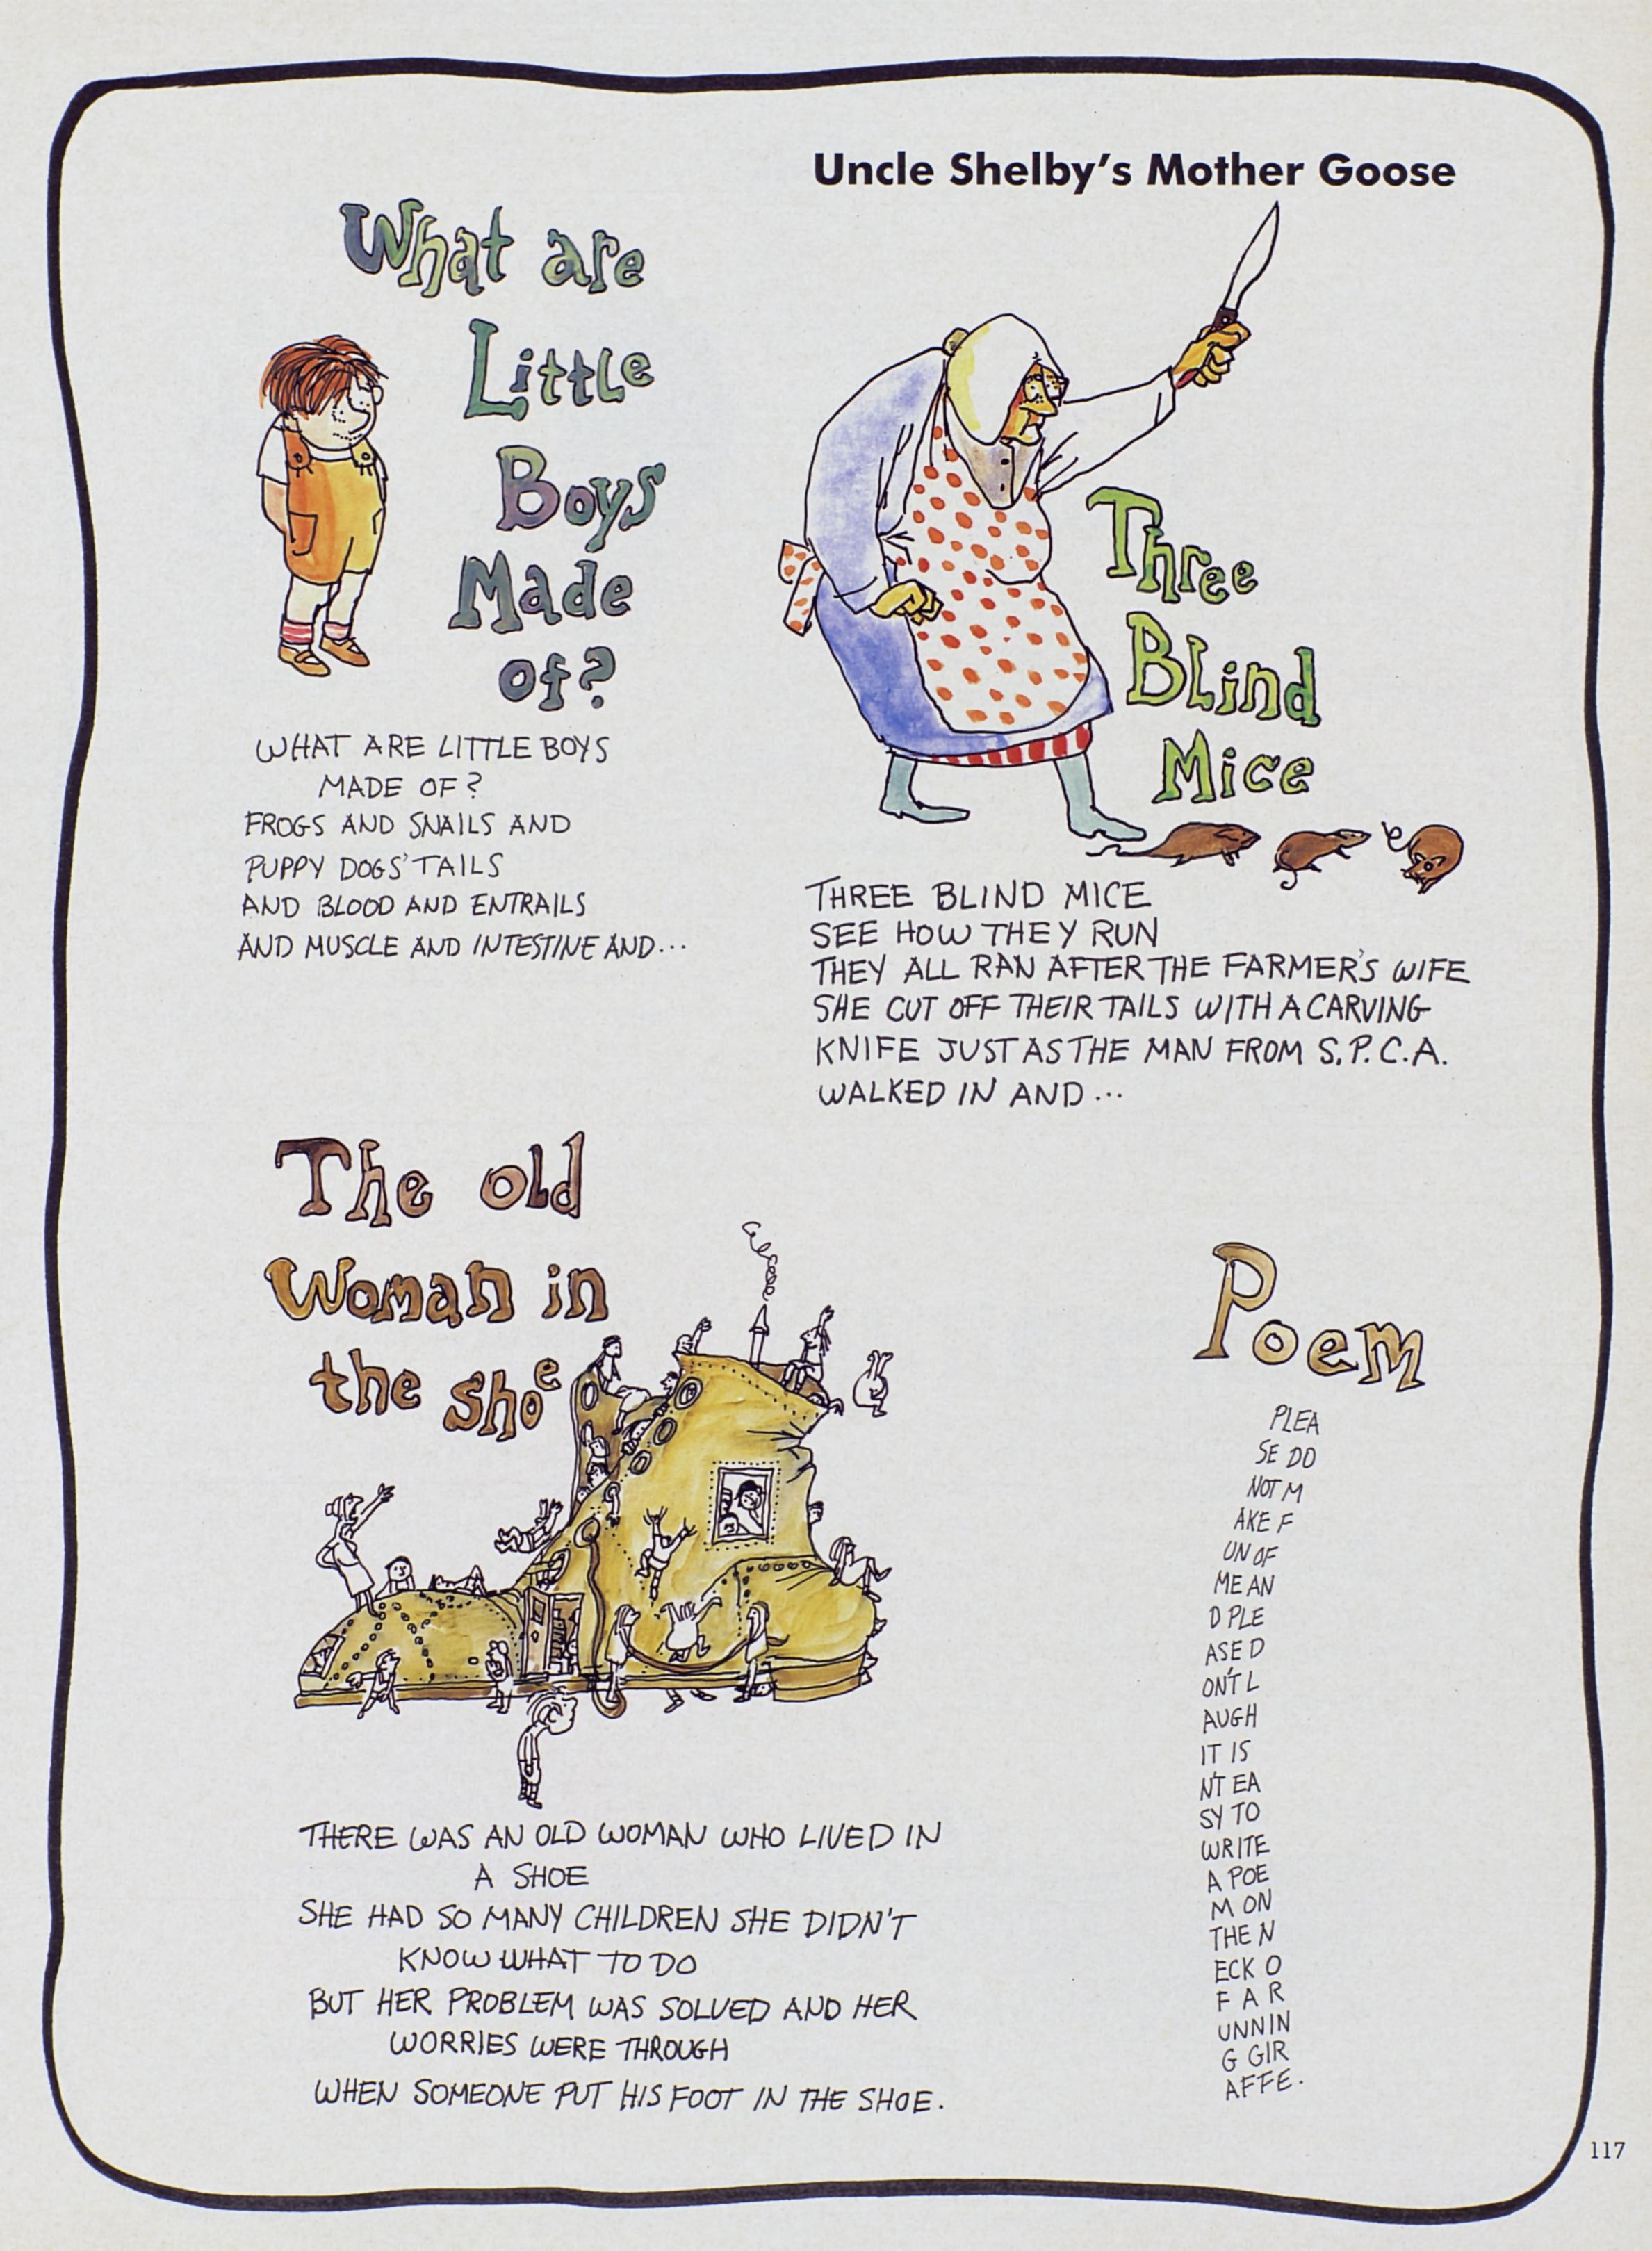 Uncle Shelby's Mother Goose
What are
Little
Boys
Made
of?
WHAT ARE LITTLE BOYS
MADE OF?
FROGS AND SNAILS AND
PUPPY DOGS' TAILS
AND BLOOD AND ENTRAILS
AND MUSCLE AND INTESTINE AND...
Three
Blind
Mice
THREE BLIND MICE
SEE HOW THEY RUN
THEY ALL RAN AFTER THE FARMER'S WIFE
SHE CUT OFF THEIR TAILS WITH A CARVING
KNIFE JUST AS THE MAN FROM S.P.C.A.
WALKED IN AND...
The old
Woman in
the shoe
THERE WAS AN OLD WOMAN WHO LIVED IN
A SHOE
SHE HAD SO MANY CHILDREN SHE DIDN'T
KNOW WHAT TO DO
BUT HER PROBLEM WAS SOLVED AND HER
WORRIES WERE THROUGH
WHEN SOMEONE PUT HIS FOOT IN THE SHOE.
Poem
PLEA
SE DO
NOT M
AKE F
UN OF
ME AN
D PLE
ASE D
ON'T L
AUGH
IT IS
N'T EA
SY TO
WRITE
A POE
M ON
THE N
ECK O
F A R
UNNIN
G GIR
AFFE.
117